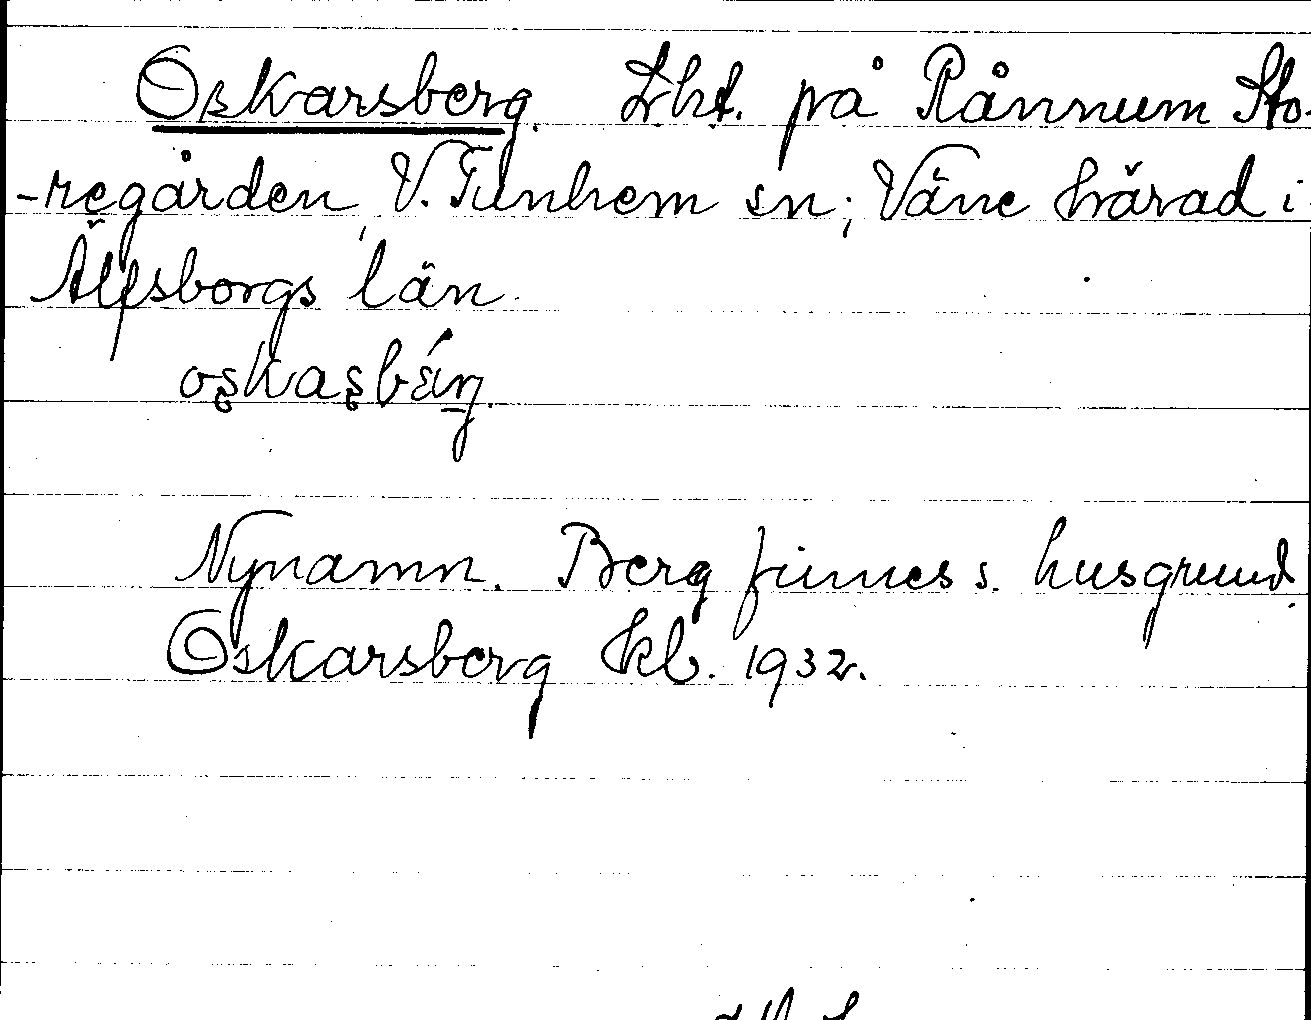 Oskarsberg. Lht. på Rånnum Sto-
-regården, V. Tunhem sn; Väne härad i
Älfsborgs län.
Nynamn. Berg finnes s. husgrund.
Oskarsberg kl. 1932.